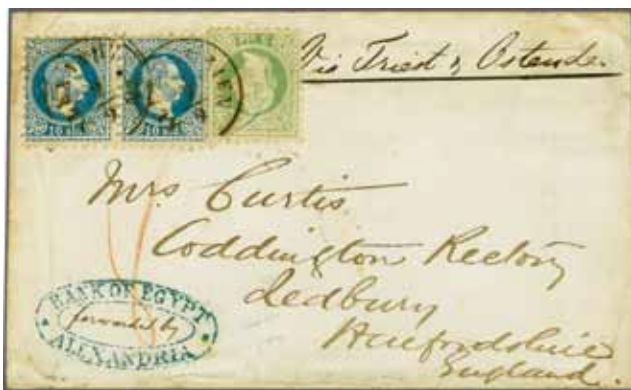 Via Triest & Ostende
Mrs Curtis
Coddington Rectory
Ledbury
Herefordshire
England.
BANK OF EGYPT
forwarded by
ALEXANDRIA